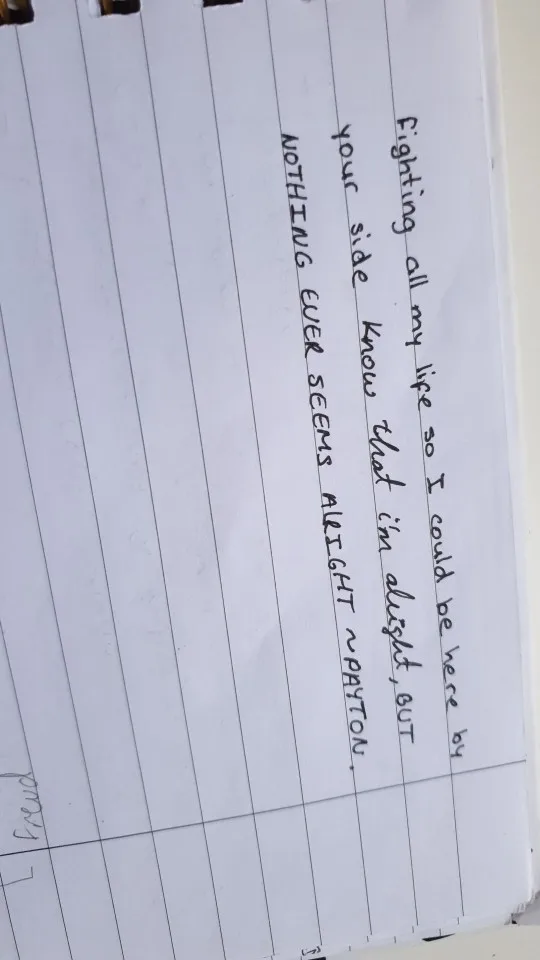 Fighting all my life so I could be here by
your side know that i'm alright, BUT
NOTHING EVER SEEMS ALRIGHT ~PAYTON.